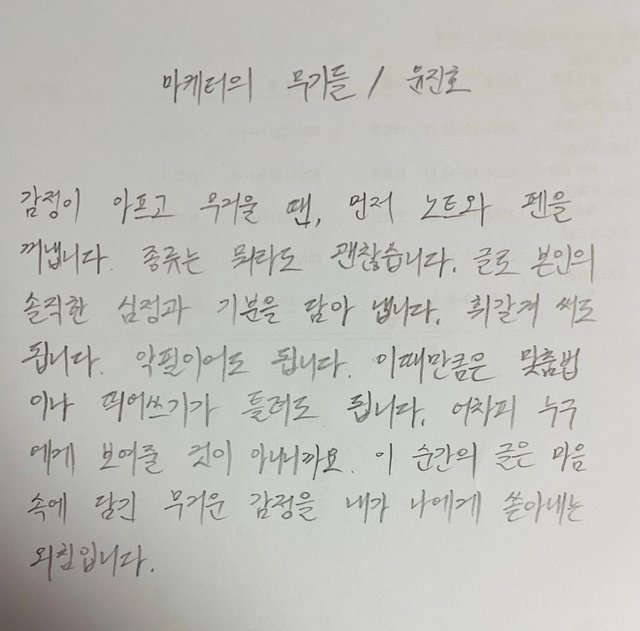 마케터의 무기들 / 윤진호
감정이 아프고 무거울 땐, 먼저 노트와 펜을
꺼냅니다. 종류는 뭐라도 괜찮습니다. 글로 본인의
솔직한 심정과 기분을 담아 냅니다. 휘갈겨 써도
됩니다. 악필이어도 됩니다. 이때만큼은 맞춤법
이나 띄어쓰기가 틀려도 됩니다. 어차피 누구
에게 보여줄 것이 아니니까요. 이 순간의 글은 마음
속에 담긴 무거운 감정을 내가 나에게 쏟아내는
외침입니다.